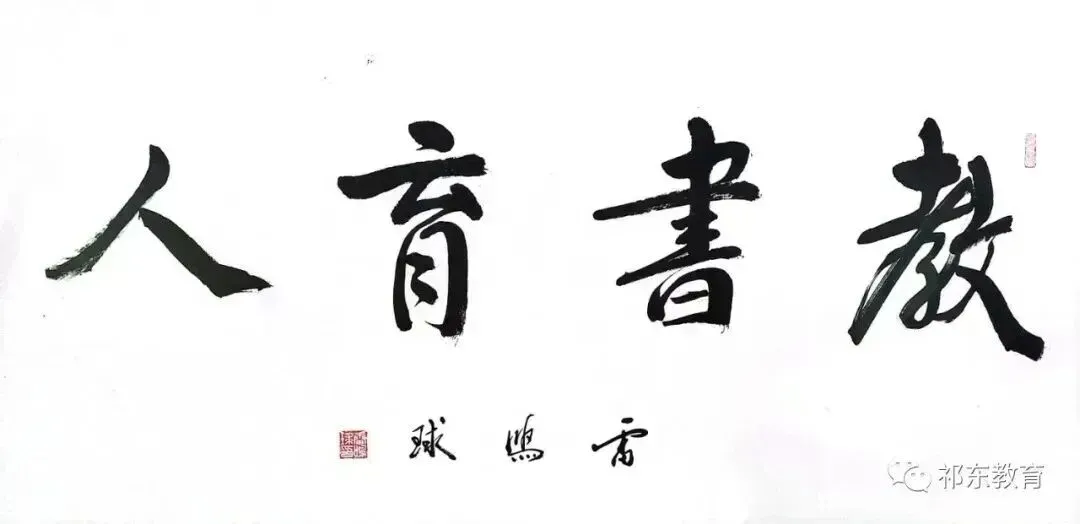 教書育人
雷鸣球
祁东教育